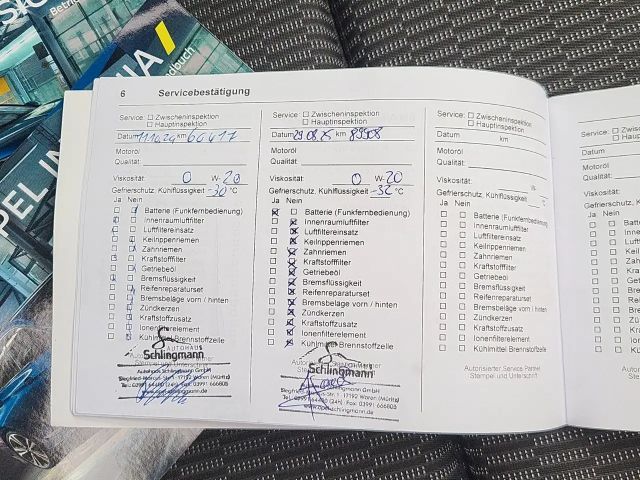 Betrie
ndbuch
6 Servicebestätigung
Service: ☐ Zwischeninspektion
☐ Hauptinspektion
Datum 11.10.24 km 60417
Motoröl
Qualität:
Viskosität: 0 W-20
Gefrierschutz, Kühlflüssigkeit -30 °C
Ja Nein
Batterie (Funkfernbedienung)
Innenraumluftfilter
Luftfiltereinsatz
Keilrippenriemen
Zahnriemen
Kraftstofffilter
Getriebeöl
Bremsflüssigkeit
Reifenreparaturset
Bremsbeläge vorn / hinten
Zündkerzen
Kraftstoffzusatz
Ionenfilterelement
Kühlmittel Brennstoffzelle
AUTOHAUS
Schlingmann
Autohaus Schlingmann GmbH
17192 Waren (Müritz)
Service: ☐ Zwischeninspektion
☐ Hauptinspektion
Datum 29.08.25 km 89908
Motoröl
Qualität:
Viskosität: 0 W-20
Gefrierschutz, Kühlflüssigkeit -32 °C
Ja Nein
Batterie (Funkfernbedienung)
Innenraumluftfilter
Luftfiltereinsatz
Keilrippenriemen
Zahnriemen
Kraftstofffilter
Getriebeöl
Bremsflüssigkeit
Reifenreparaturset
Bremsbeläge vorn / hinten
Zündkerzen
Kraftstoffzusatz
Ionenfilterelement
Kühlmittel Brennstoffzelle
Schlingmann
Schlingmann GmbH
17192 Waren (Müritz)
www.opel-schlingmann.de
Service: ☐ Zwischeninspektion
☐ Hauptinspektion
Datum km
Motoröl
Qualität:
Viskosität: W-
Gefrierschutz, Kühlflüssigkeit °C
Ja Nein
Batterie (Funkfernbedienung)
Innenraumluftfilter
Luftfiltereinsatz
Keilrippenriemen
Zahnriemen
Kraftstofffilter
Getriebeöl
Bremsflüssigkeit
Reifenreparaturset
Bremsbeläge vorn / hinten
Zündkerzen
Kraftstoffzusatz
Ionenfilterelement
Kühlmittel Brennstoffzelle
Autorisierter Service Partner
Stempel und Unterschrift
Service: ☐ Zw
☐ Ha
Datum
Motoröl
Qualität:
Viskosität:
Gefrierschutz, Kü
Ja Nein
Batte
Innen
Luft
Keil
Zahn
Kra
Ge
Br
R